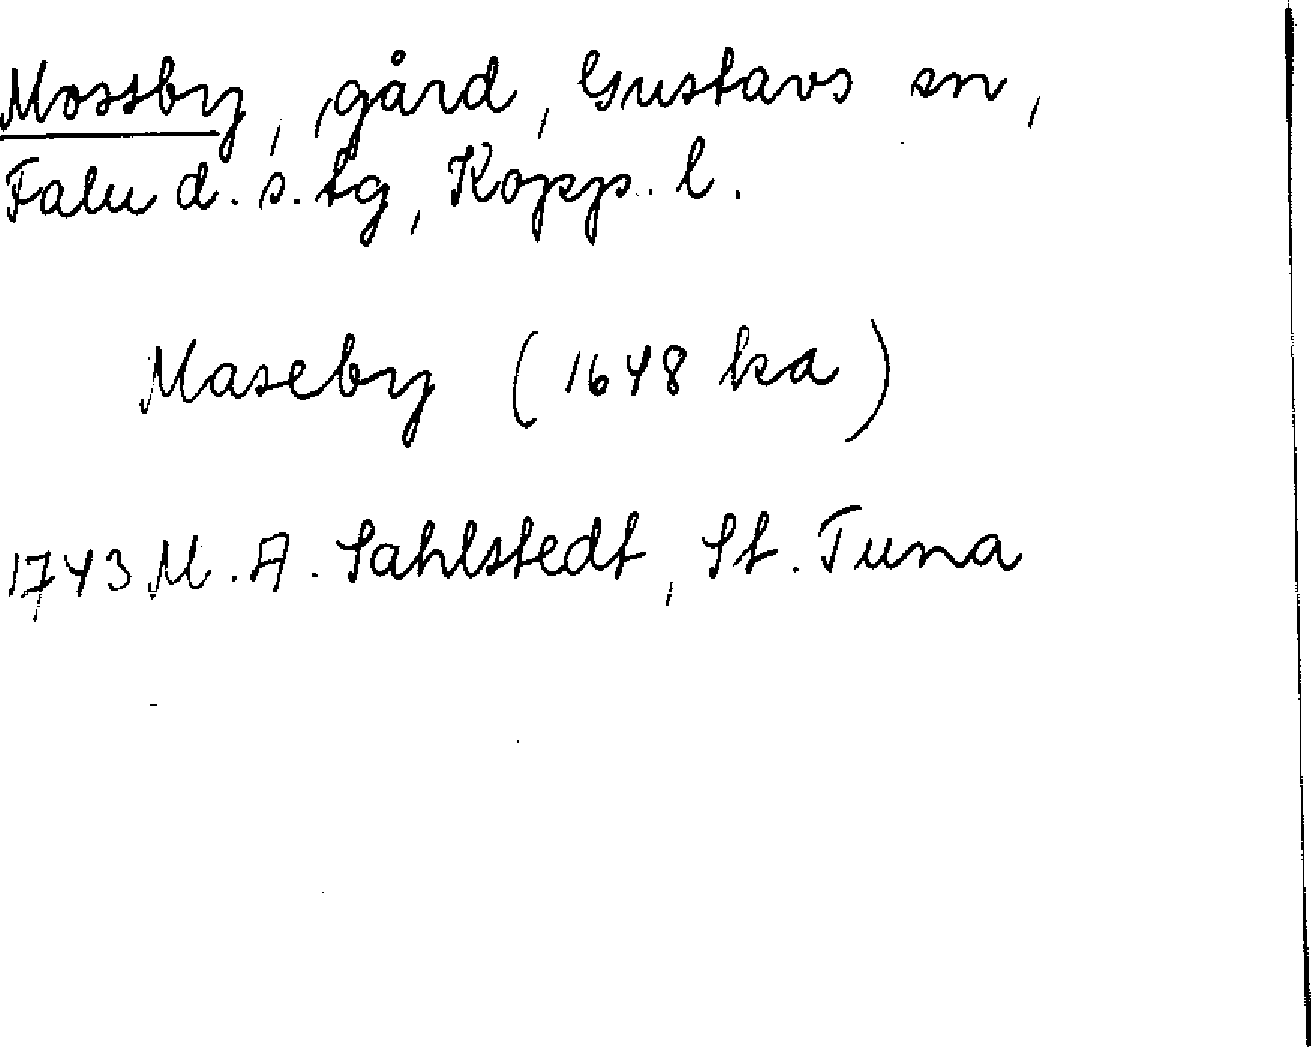 Mossby, gård, Gustavs sn,
Falu d. s. tg, Kopp. l.
Maseby (1648 ka)
1743 M. A. Sahlstedt, St. Tuna